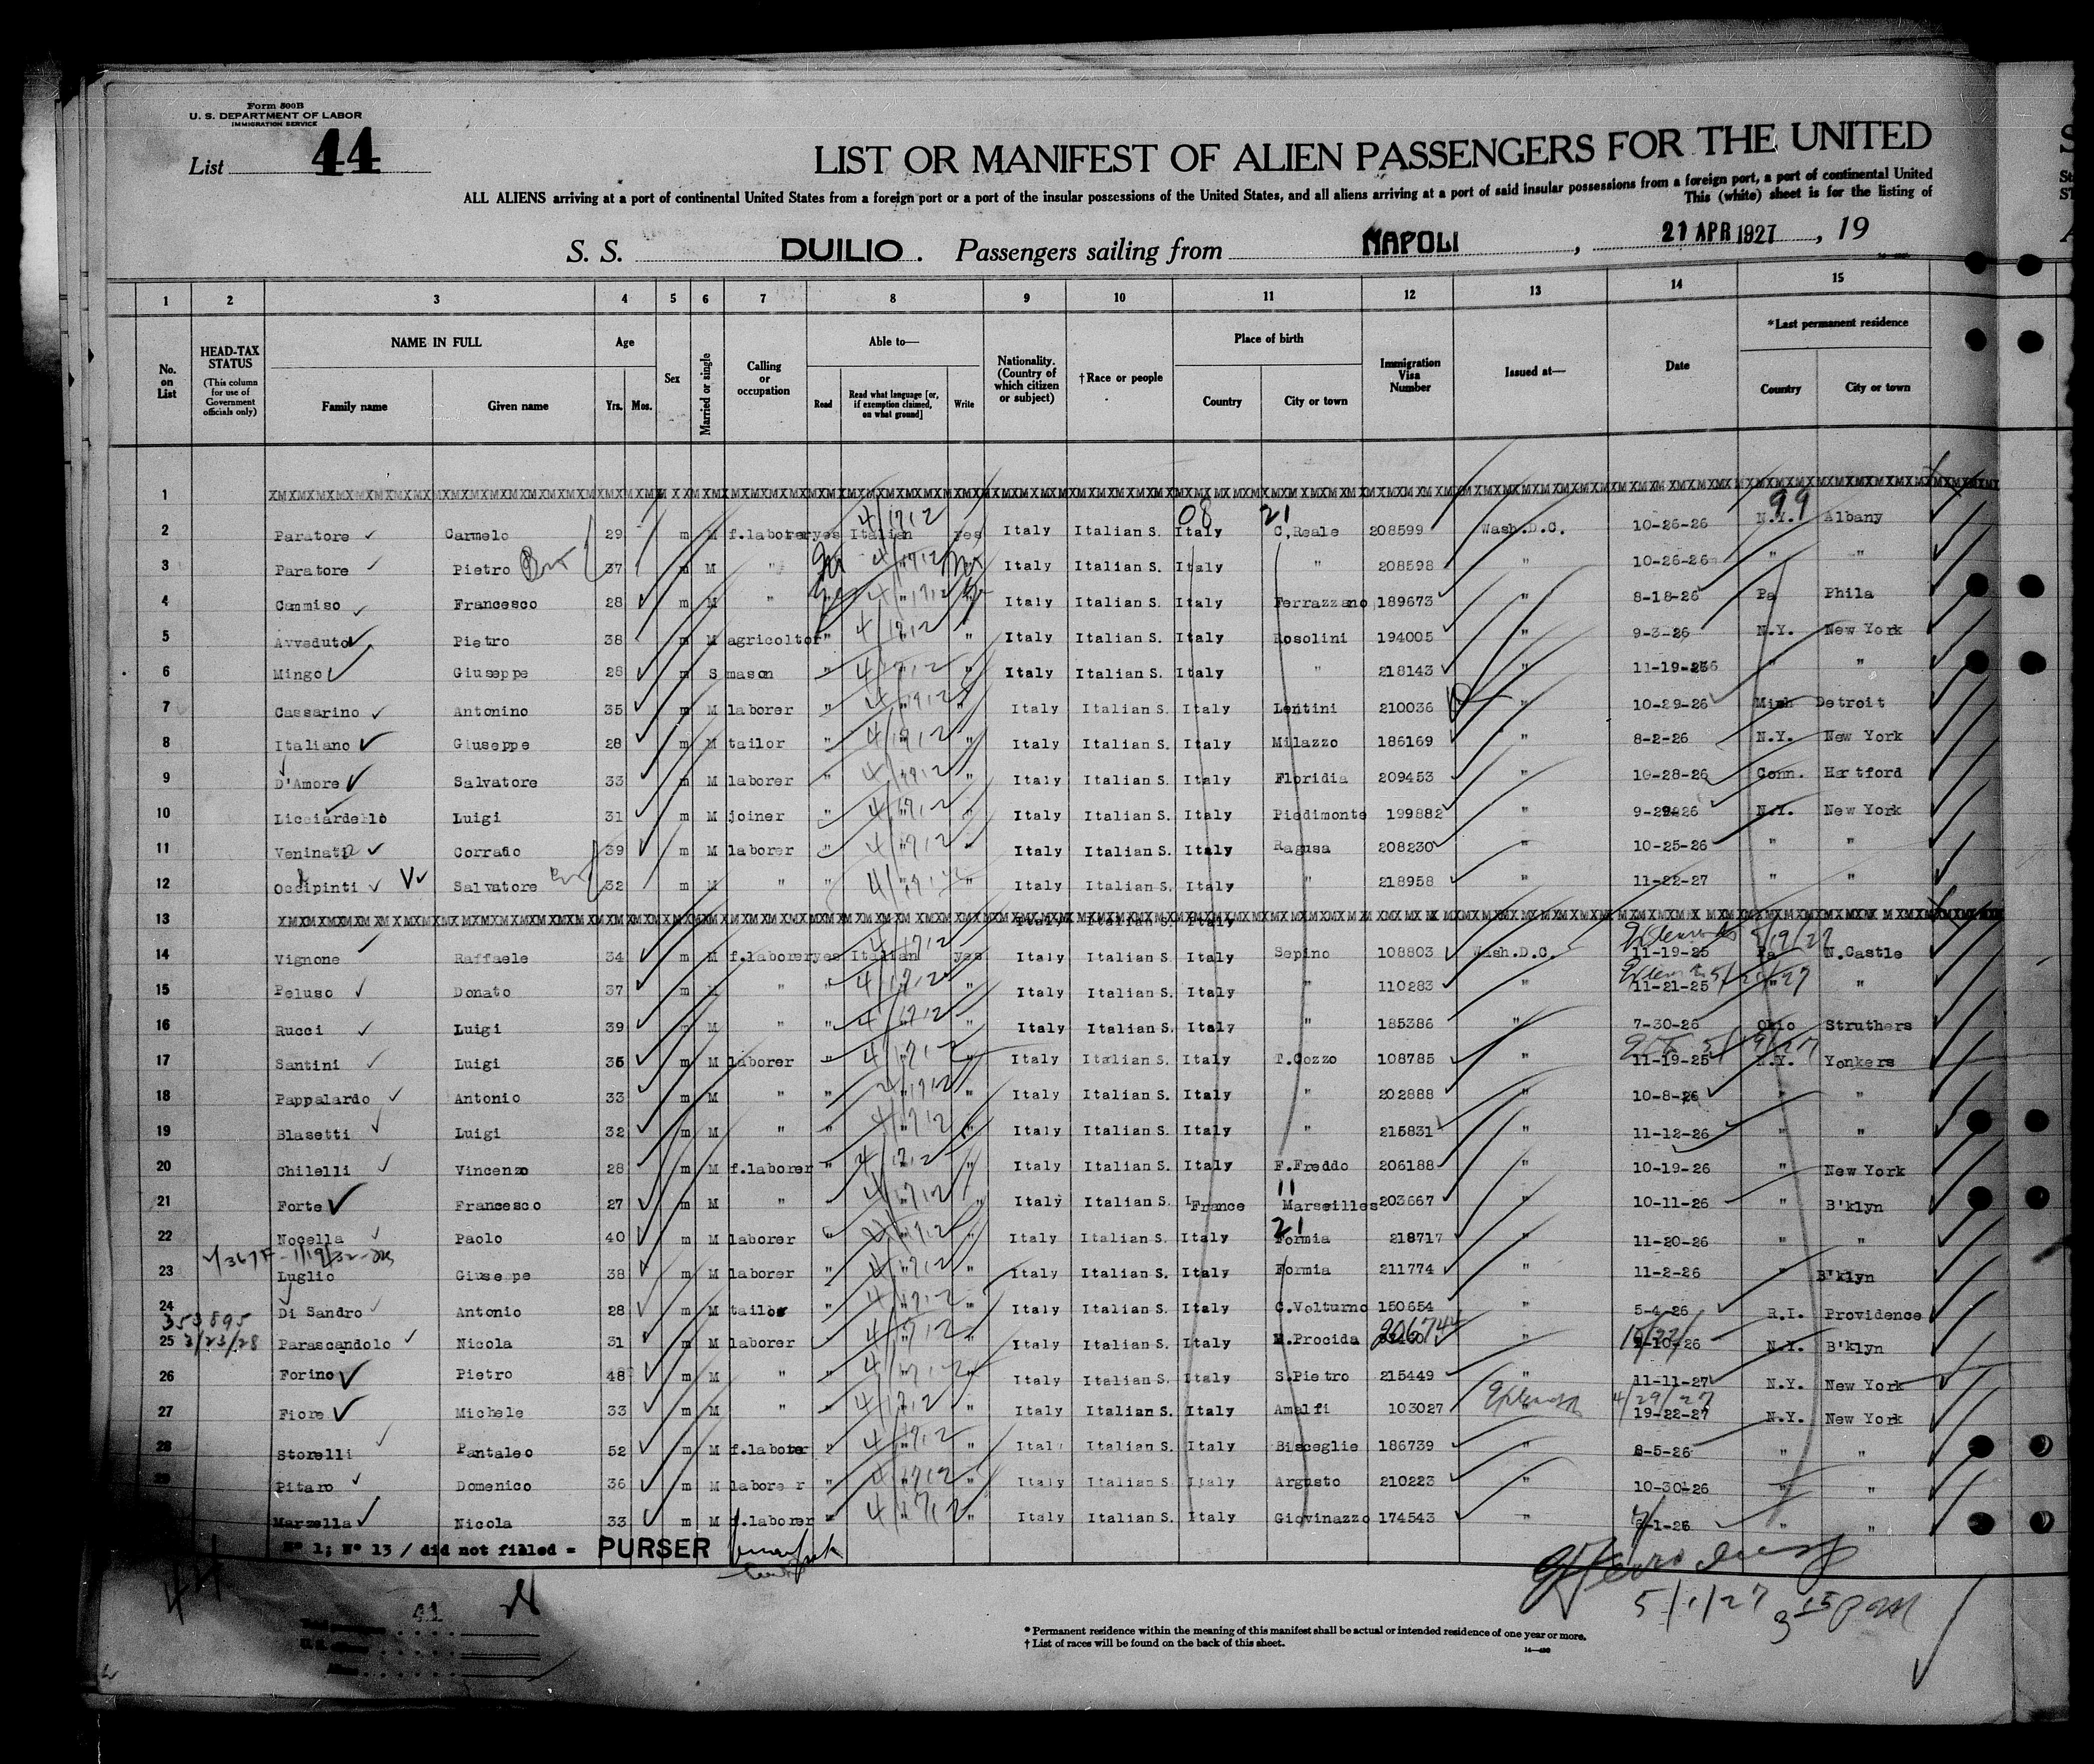 Form 500B
U. S. DEPARTMENT OF LABOR
IMMIGRATION SERVICE
List 44
LIST OR MANIFEST OF ALIEN PASSENGERS FOR THE UNITED
ALL ALIENS arriving at a port of continental United States from a foreign port or a port of the insular possessions of the United States, and all aliens arriving at a port of said insular possessions from a foreign port, a port of continental United
This (white) sheet is for the listing of
S. S. DUILIO. Passengers sailing from NAPOLI, 21 APR 1927, 19
1 2 3 4 5 6 7 8 9 10 11 12 13 14 15
No. on List
HEAD-TAX STATUS (This column for use of Government officials only)
NAME IN FULL Family name Given name
Age Yrs. Mos.
Sex
Married or single
Calling or occupation
Able to— Read Read what language [or, if exemption claimed, on what ground] Write
Nationality. (Country of which citizen or subject)
†Race or people
Place of birth Country City or town
Immigration Visa Number
Issued at—
Date
*Last permanent residence Country City or town
1
99
4/1912 08 21
2 Paratore Carmelo 29 m M f.laborer yes Italian yes Italy Italian S. Italy C.Reale 208599 Wash.D.C. 10-26-26 N.Y. Albany
3 Paratore Pietro Bro 37 m M " " Italy Italian S. Italy " 208598 " 10-26-26 " "
4 Cammiso Francesco 28 m M " " Italy Italian S. Italy Ferrazzano 189673 " 8-18-26 Pa Phila
5 Avveduto Pietro 38 m M agricoltor " " " Italy Italian S. Italy Rosolini 194005 " 9-3-26 N.Y. New York
6 Mingo Giuseppe 28 m S mason " " " Italy Italian S. Italy " 218143 " 11-19-26 " "
7 Cassarino Antonino 35 m M laborer " " " Italy Italian S. Italy Lentini 210036 " 10-29-26 Mich Detroit
8 Italiano Giuseppe 28 m M tailor " " " Italy Italian S. Italy Milazzo 186169 " 8-2-26 N.Y. New York
9 D'Amore Salvatore 33 m M laborer " " " Italy Italian S. Italy Floridia 209453 " 10-28-26 Conn. Hartford
10 Licciardello Luigi 31 m M joiner " " " Italy Italian S. Italy Piedimonte 199882 " N.Y. New York
11 Corrado 39 m M laborer " " " Italy Italian S. Italy Ragusa 208230 " 10-25-26 " "
12 Occhipinti Salvatore 32 m M " " " Italy Italian S. Italy " 218958 " 11-22-27 " "
13 Italy Italian S. Italy
14 Vignone Raffaele 34 m M f.laborer yes Italian yes Italy Italian S. Italy Sepino 108803 Wash.D.C. 11-19-25 Pa N.Castle
15 Peluso Donato 37 m M " " " Italy Italian S. Italy " 110283 " 11-21-25 " "
16 Rucci Luigi 39 m M " " " Italy Italian S. Italy " 185386 " 7-30-26 Ohio Struthers
17 Santini Luigi 36 m M laborer " " " Italy Italian S. Italy T.Cozzo 108785 " 11-19-25 N.Y. Yonkers
18 Pappalardo Antonio 33 m M " " " Italy Italian S. Italy " 202888 " 10-8-26 " "
19 Blasetti Luigi 32 m M " " " Italy Italian S. Italy " 215831 " 11-12-26 " "
20 Chilelli Vincenzo 28 m M f.laborer " " " Italy Italian S. Italy F.Freddo 206188 " 10-19-26 " New York
11
21 Forte Francesco 27 m M " " " " Italy Italian S. France Marseilles 203667 " 10-11-26 " B'klyn
21
22 Nocella Paolo 40 m M laborer " " " Italy Italian S. Italy Formia 218717 " 11-20-26 " "
23 Luglio Giuseppe 38 m M laborer " " " Italy Italian S. Italy Formia 211774 " 11-2-26 " B'klyn
24 Di Sandro Antonio 28 m M tailor " " " Italy Italian S. Italy C.Volturno 150654 " 5-4-26 R.I. Providence
353895
25 3/23/28 Parascandolo Nicola 31 m M laborer " " Italy Italian S. Italy M.Procida 206744 " N.Y. B'klyn
26 Forino Pietro 48 m M " " " Italy Italian S. Italy S.Pietro 215449 " 11-11-27 N.Y. New York
4/29/27
27 Fiore Michele 33 m M " " " Italy Italian S. Italy Amalfi 103027 19-22-27 N.Y. New York
28 Storelli Pantaleo 52 m M f.laborer " " " Italy Italian S. Italy Bisceglie 186739 " 8-5-26 " "
29 Pitaro Domenico 36 m M laborer " " " Italy Italian S. Italy Argusto 210223 " 10-30-26 " "
Marzella Nicola 33 m M f.laborer " " " Italy Italian S. Italy Giovinazzo 174543 " " "
N° 1; N° 13 / did not filled = PURSER
44
41
5/1/27 3 15 PM
* Permanent residence within the meaning of this manifest shall be actual or intended residence of one year or more.
† List of races will be found on the back of this sheet.